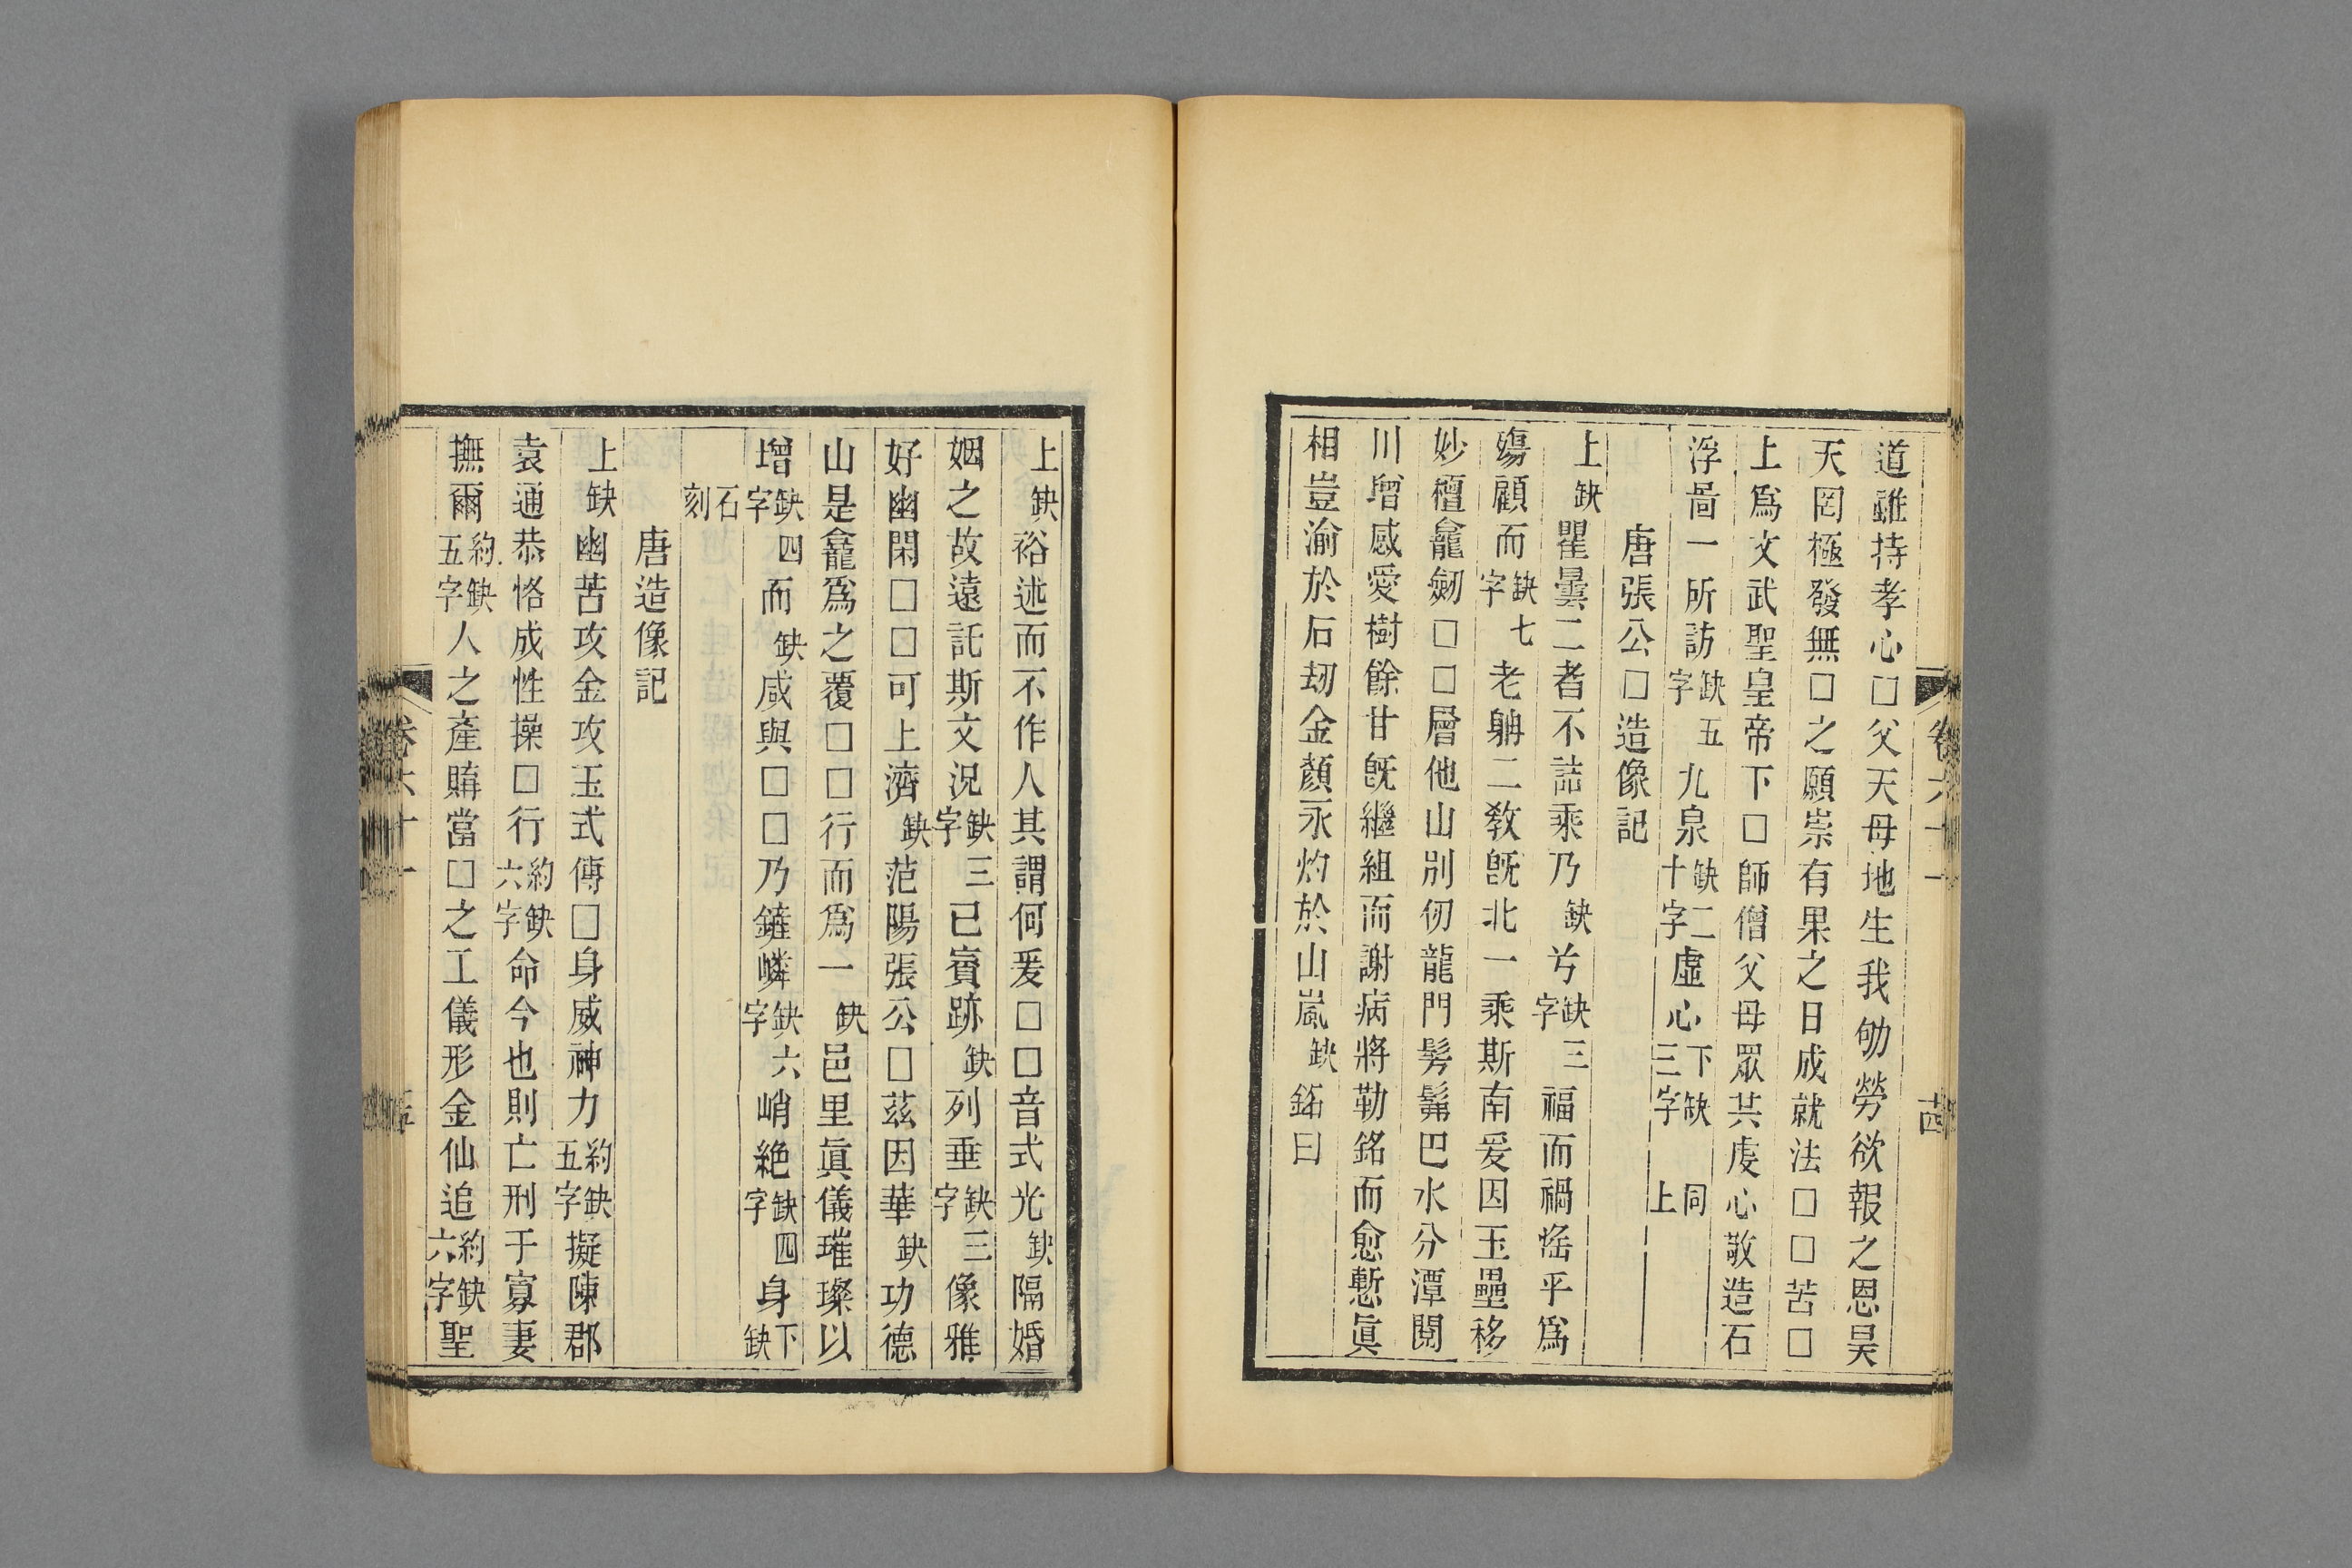 道雖持孝心□父天母地生我劬勞欲報之恩昊
天罔極發無□之願崇有果之日成就法□□苦□
上爲文武聖皇帝下□師僧父母眾其虔心敬造石
浮啚一所訪缺五字九泉缺二十字虛心下缺三字 同上
唐張公□造像記
上缺瞿曇二者不誌乘乃缺兮缺三字福而禍滛乎爲
殤顧而缺七字老軄二敎旣北一乘斯南爰因玉壘移
妙檀龕劒□□層他山別仞龍門髣髴巴水分潭閱
川增感愛樹餘甘旣繼組而謝病將勒銘而愈慙眞
相豈渝於石刼金顏永灼於山嵐缺銘曰
卷六十一
十四
上缺裕述而不作人其謂何爰□□音式光缺隔婚
姻之故遠託斯文況缺三字已賓跡缺列垂缺三字像雅
好幽閑□□可上濟缺范陽張公□茲因華缺功德
山是龕爲之覆□□行而爲一缺邑里眞儀璀璨以
增缺四字而缺咸與□□乃鏟嶙缺六字峭絶缺四字身下缺
石刻
唐造像記
上缺幽苦攻金攻玉式傳□身威神力約缺五字擬陳郡
袁通恭恪成性操□行約缺六字命今也則亡刑于寡妻
撫爾約缺五字人之產購當□之工儀形金仙追約缺六字聖
卷六十一